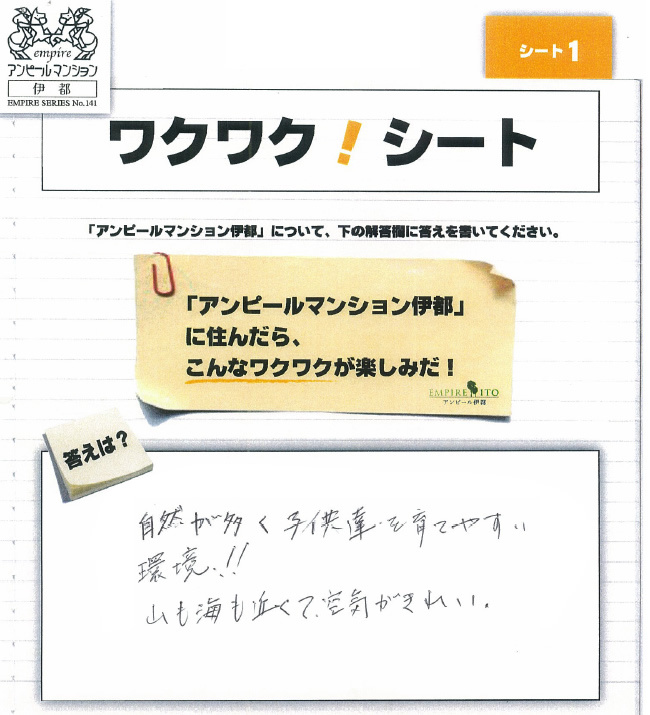 empire
アンピールマンション
伊都
EMPIRE SERIES No.141
シート1
ワクワク！シート
「アンピールマンション伊都」について、下の解答欄に答えを書いてください。
「アンピールマンション伊都」
に住んだら、
こんなワクワクが楽しみだ！
EMPIRE ITO
アンピール伊都
答えは？
自然が多く子供達を育てやすい
環境!!
山も海も近くて、空気がきれい。